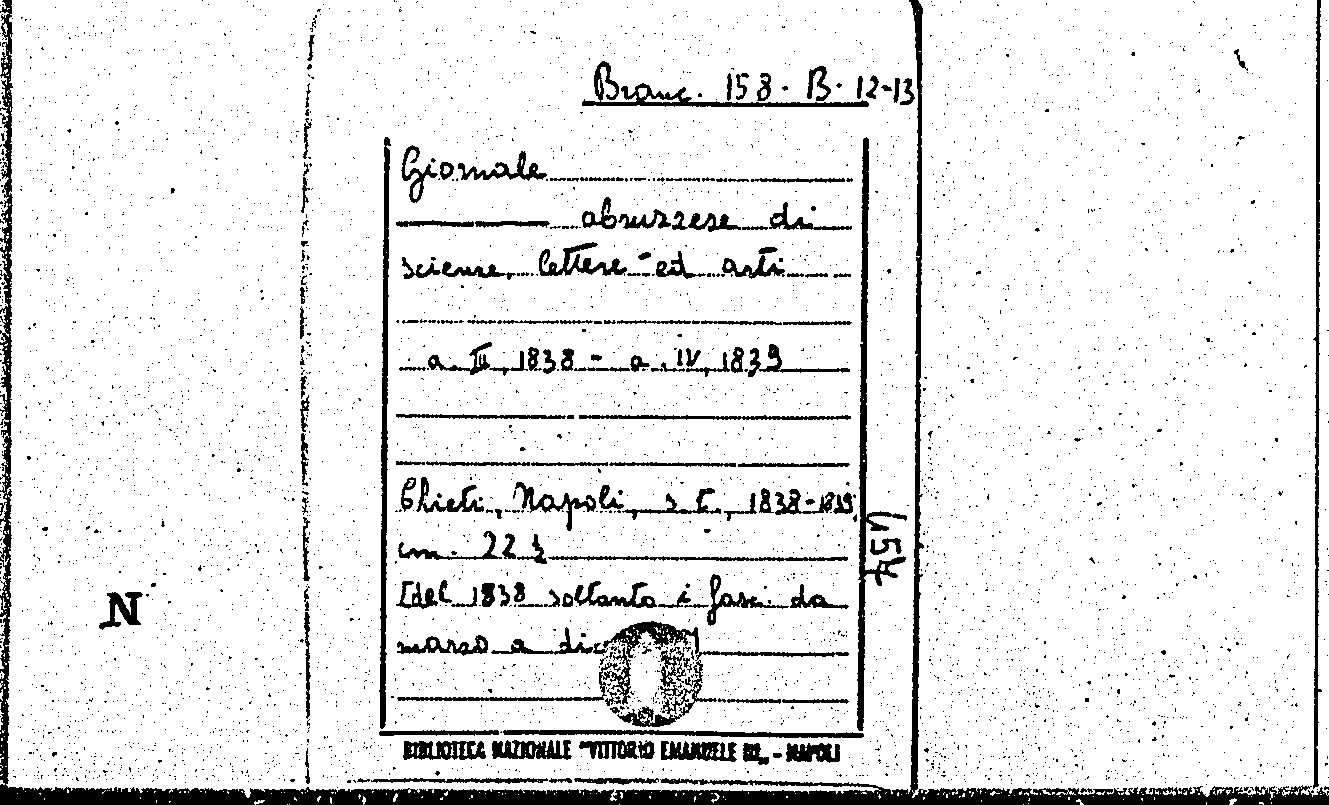 Branc. 158. B. 12-13
Giornale
abruzzese di
scienze, lettere ed arti
a. III, 1838 - a. IV, 1839
Chieti, Napoli, s. t., 1838-1839.
cm. 22 ½
[del 1838 soltanto i fasc. da
marzo a dic
457
N
BIBLIOTECA NAZIONALE "VITTORIO EMANUELE III„ - NAPOLI